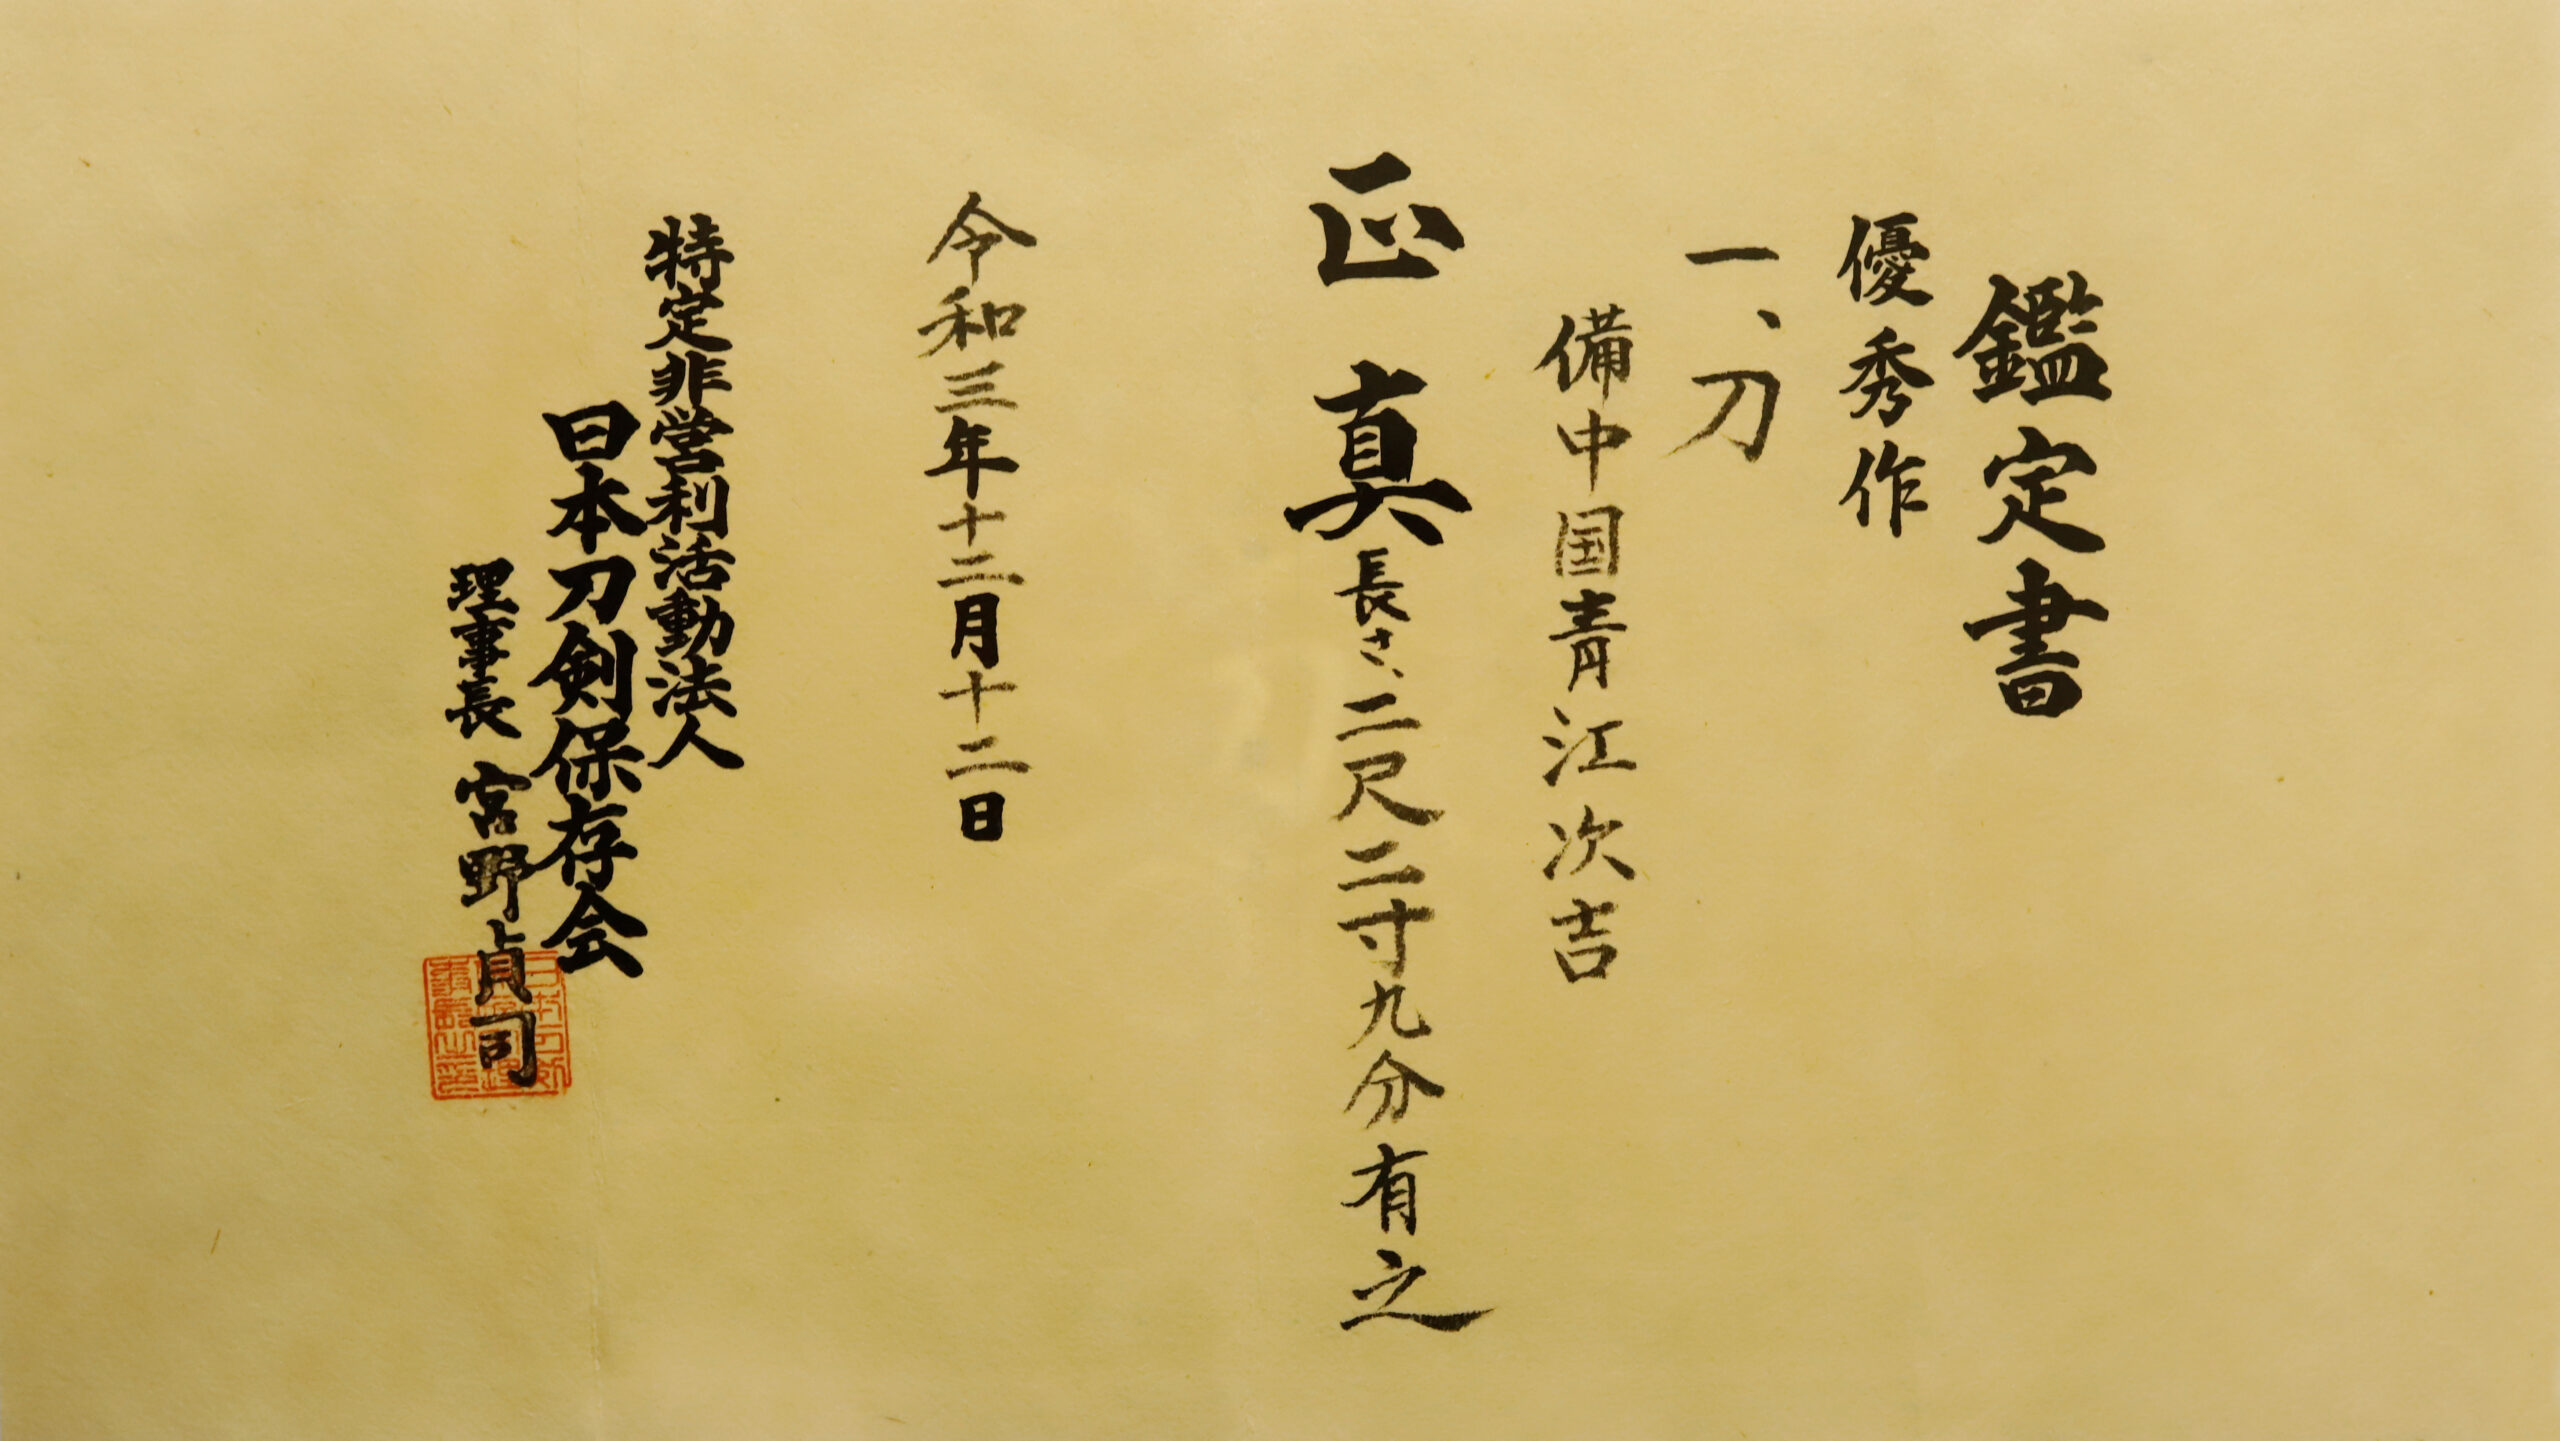 鑑定書
優秀作
一、刀
備中国青江次吉
正真長さ、二尺二寸九分有之
令和三年十二月十二日
特定非営利活動法人
日本刀剣保存会
理事長 宮野貞司